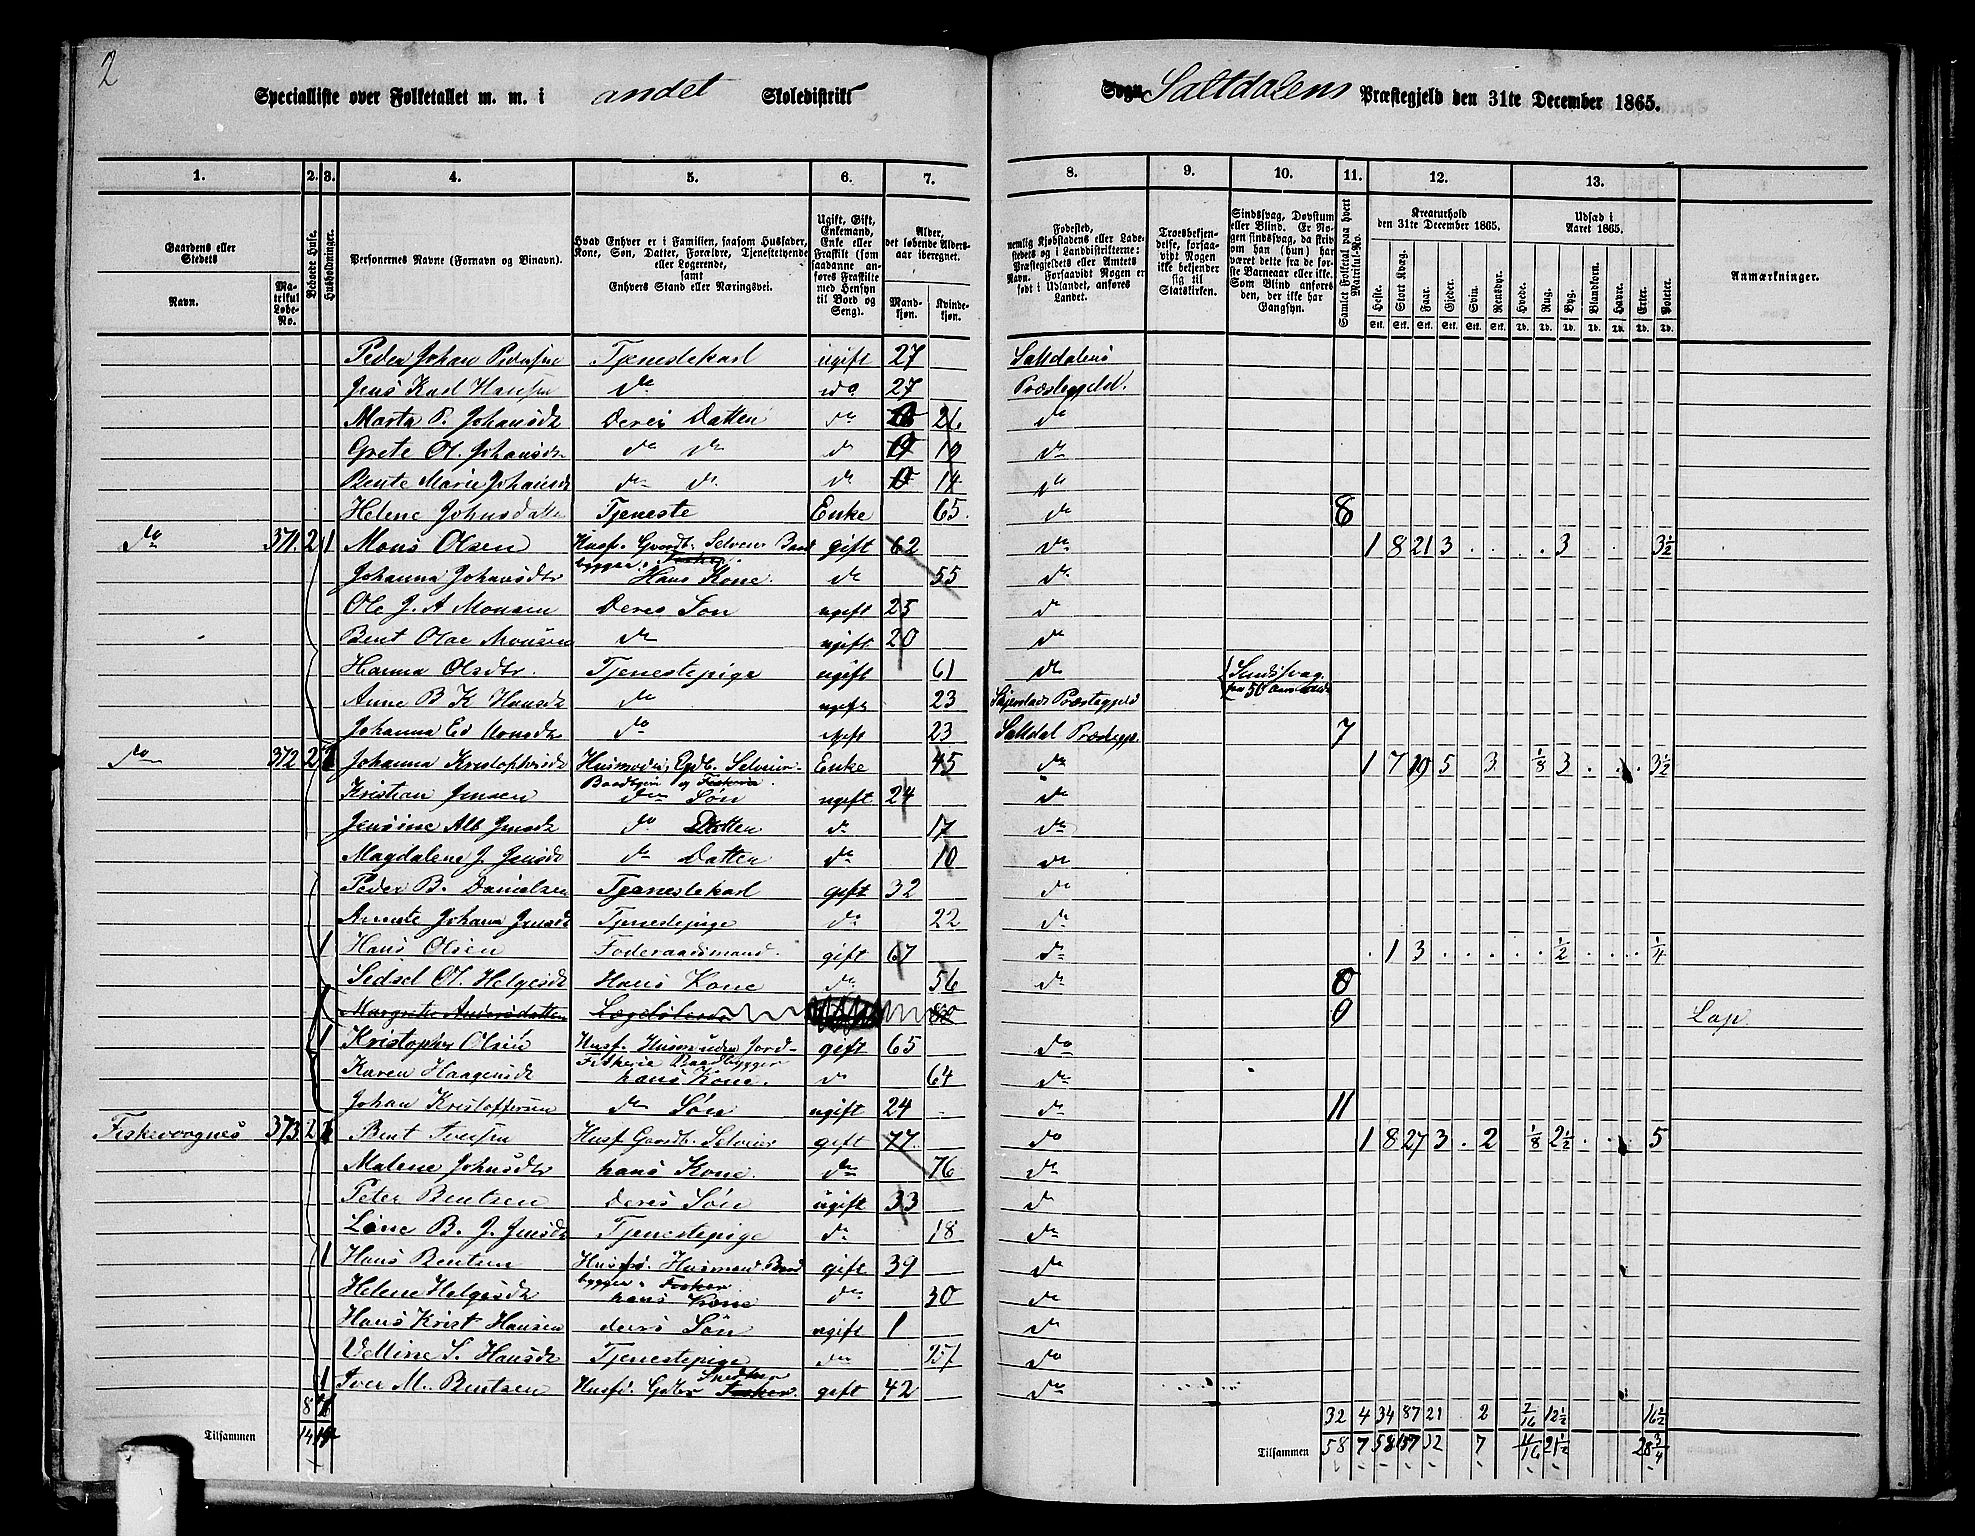 2
Specialliste over Folketallet m. m. i andet Skoledistrikt
Sogn Saltdalens Præstegjeld den 31te December 1865.
1. 2. 3. 4. 5. 6. 7. 8. 9. 10. 11. 12. 13.
Gaardens eller Stedets
Navn.
Matrikul Løbe-No.
Beboede Huse.
Husholdninger.
Personernes Navne (Fornavn og Binavn).
Hvad Enhver er i Familien, saasom Husfader, Kone, Søn, Datter, Forældre, Tjenestetyende eller Logerende, samt Enhvers Stand eller Næringsvei.
Ugift, Gift, Enkemand, Enke eller Fraskilt (som saadanne anføres Fraskilte med Hensyn til Bord og Seng).
Alder, det løbende Aldersaar iberegnet.
Mandkjøn. Kvindekjøn.
Fødested, nemlig Kjøbstadens eller Ladestedets og i Landdistrikterne: Præstegjeldets eller Amtets Navn. Forsaavidt Nogen er født i Udlandet, anføres Landet.
Troesbekjendelse, forsaavidt Nogen ikke bekjender sig til Statskirken.
Sindssvag, Døvstum eller Blind. Er Nogen sindssvag, da skrives om han (hun) har været dette fra de første Barneaar eller ikke. Som Blind anføres den, der ikke har Gangsyn.
Samlet Folketal paa hvert Matrikul-No.
Kreaturhold den 31te December 1865.
Heste. Stort Kvæg. Faar. Gjeder. Svin. Rensdyr.
Udsæd i Aaret 1865.
Hvede. Rug. Byg. Blandkorn. Havre. Erter. Poteter.
Anmærkninger.
Peder Johan Pedersen Tjenestekarl ugift 27 Saltdalens
Jens Karl Hansen do do 27 Præstegjeld.
Marta P. Johansdt Deres Datter do 21 do
Grete Ol. Johansdt do do do 19 do
Bente Marie Johansdt do do do 14 do
Helene Johnsdatter Tjeneste Enke 65 do 8
do 371 2 1 Mons Olsen Husf. Gaardb. Selveier Baadbygger, Fisker gift 62 do 1 8 21 3 . . . . 3 3½
Johanna Johansdtr Hans Kone do 55 do
Ole J. A Monsen Deres Søn ugift 25 do
Bent Olai Monsen do ugift 20 do
Hanna Olsdtr. Tjenestepige ugift 61 do Sindssvag
Anne B K Hansdt do ugift 23 Skjerstads Præstegjeld
Johanna Ed Monsdtr do ugift 23 Saltdal Præstegj. 7
do 372 2 Johanna Kristophersdt Husmoder, Gdb. Selveier Enke 45 do 1 7 19 5 3 ⅛ 3 . . . 3½
Kristian Jensen do Søn ugift 24 do
Jensine Alb Jensdt do Datter do 17 do
Magdalene J. Jensdt do Datter do 10 do
Peder B. Danielsen Tjenestekarl gift 32 do
Annte Johana Jensdt Tjenestepige do 22 do
1 Hans Olsen Foderaadsmand. gift 67 do . 1 3 . . . . . ½ . . . ¼
Sidsel Ol. Helgesdt Hans Kone do 56 do 8
Margrete Andersdatter 80 9 Lap.
1 Kristopher Olsen Husf. Husm uden Jord- Fiskerie Baadbygger gift 65 do
Karen Haagensdt hans Kone. do 64 do
Johan Kristoffersen do Søn ugift 24 do 11
Fiskevaagnes 373 2 Bent Iversen Husf Gaardb. Selveier gift 77 do 1 8 27 3 . 2 ⅛ 2½ . . 5
Malene Johnsdtr hans Kone. do 76 do
Peter Bentsen deres Søn ugift 33 do
Lene B. J. Jensdt Tjenestepige do 18 do
1 Hans Bentsen Husf. Husmand. Baadbygger. Fisker gift 39 do
Helene Helgesdt hans Kone do 30 do
Hans Krist Hansen deres Søn ugift 1 do
Velline S. Hansdt Tjenestepige do do
1 Iver M. Bentsen Husf. Gdbr Fisker gift 42 do
8 32 4 34 87 21 . 2 2/16 12½ 16½
Tilsammen 14 Tilsammen 58 7 58 157 32 7 11/16 21½ 28¾